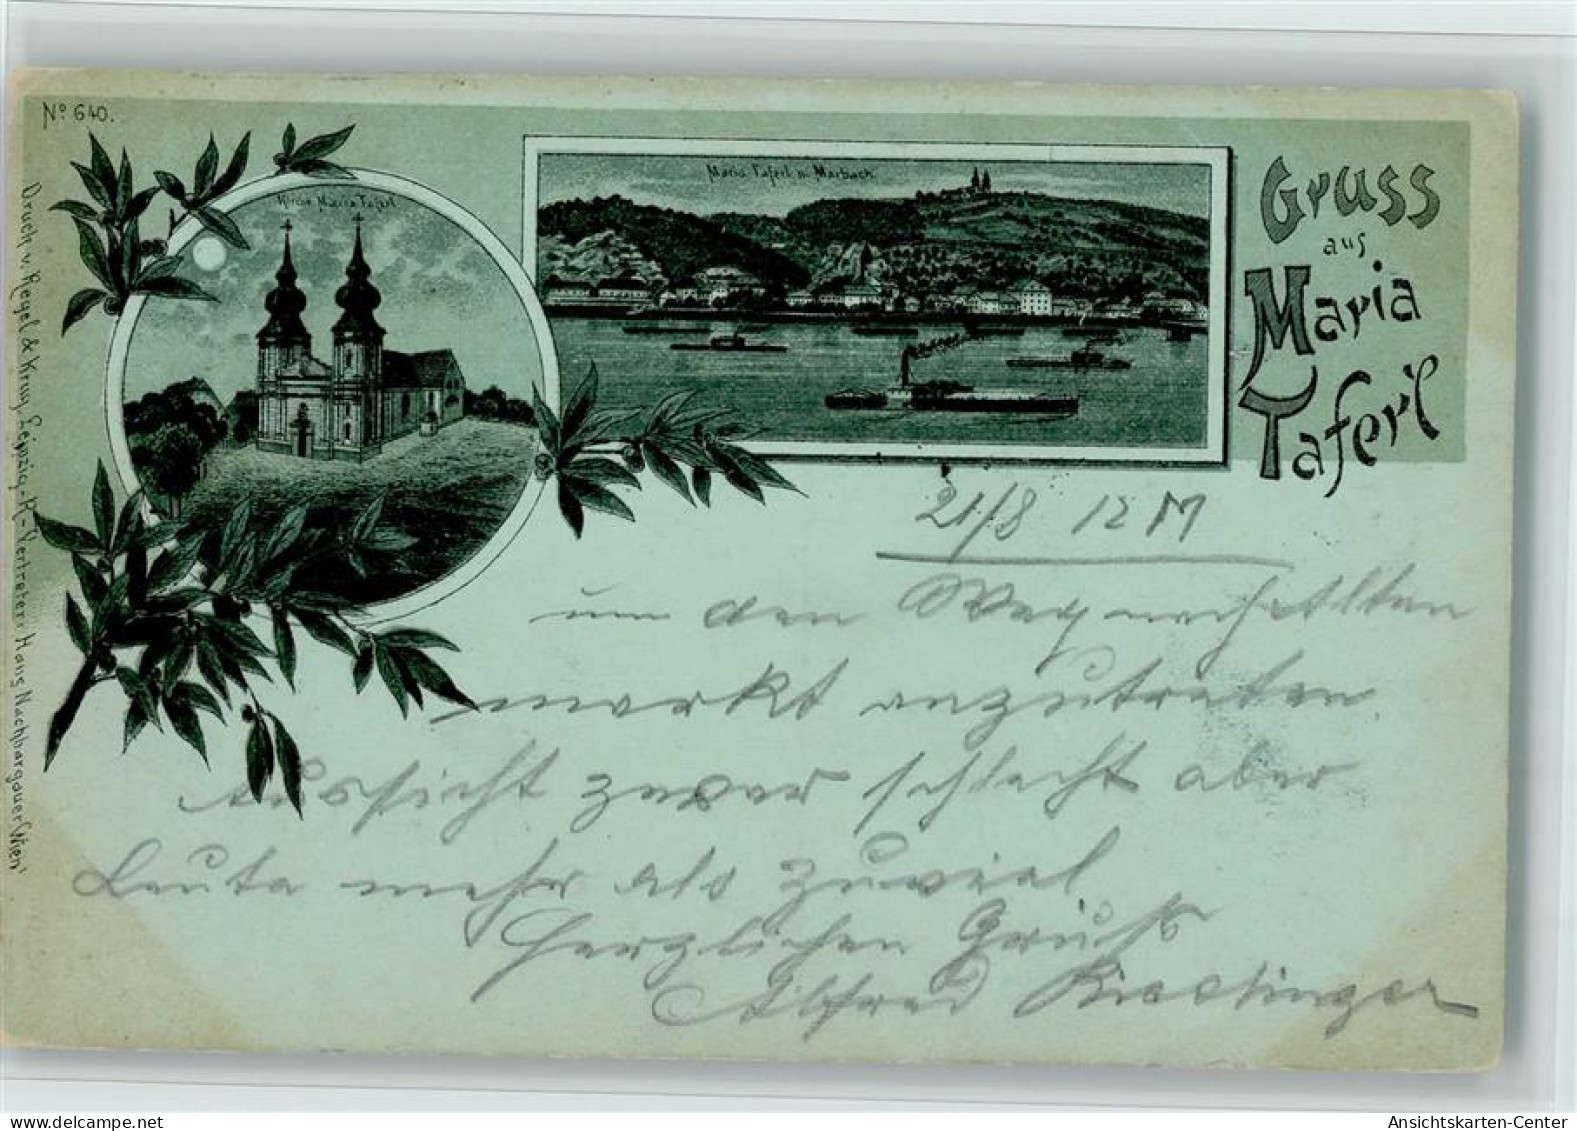 Nº 640.
Kirche Maria Taferl
Maria Taferl u. Marbach
Gruss
aus
Maria
Taferl
Druck v. Regel & Krug, Leipzig-R. Vertreter: Hans Nachbargauer Wien
21/8 12 M
um den Weg nach
markt anzutreten.
Aussicht zwar schlecht aber
Leute mehr als zuviel
Herzlichen Gruß
Alfred
delcampe.net
Ansichtskarten-Center